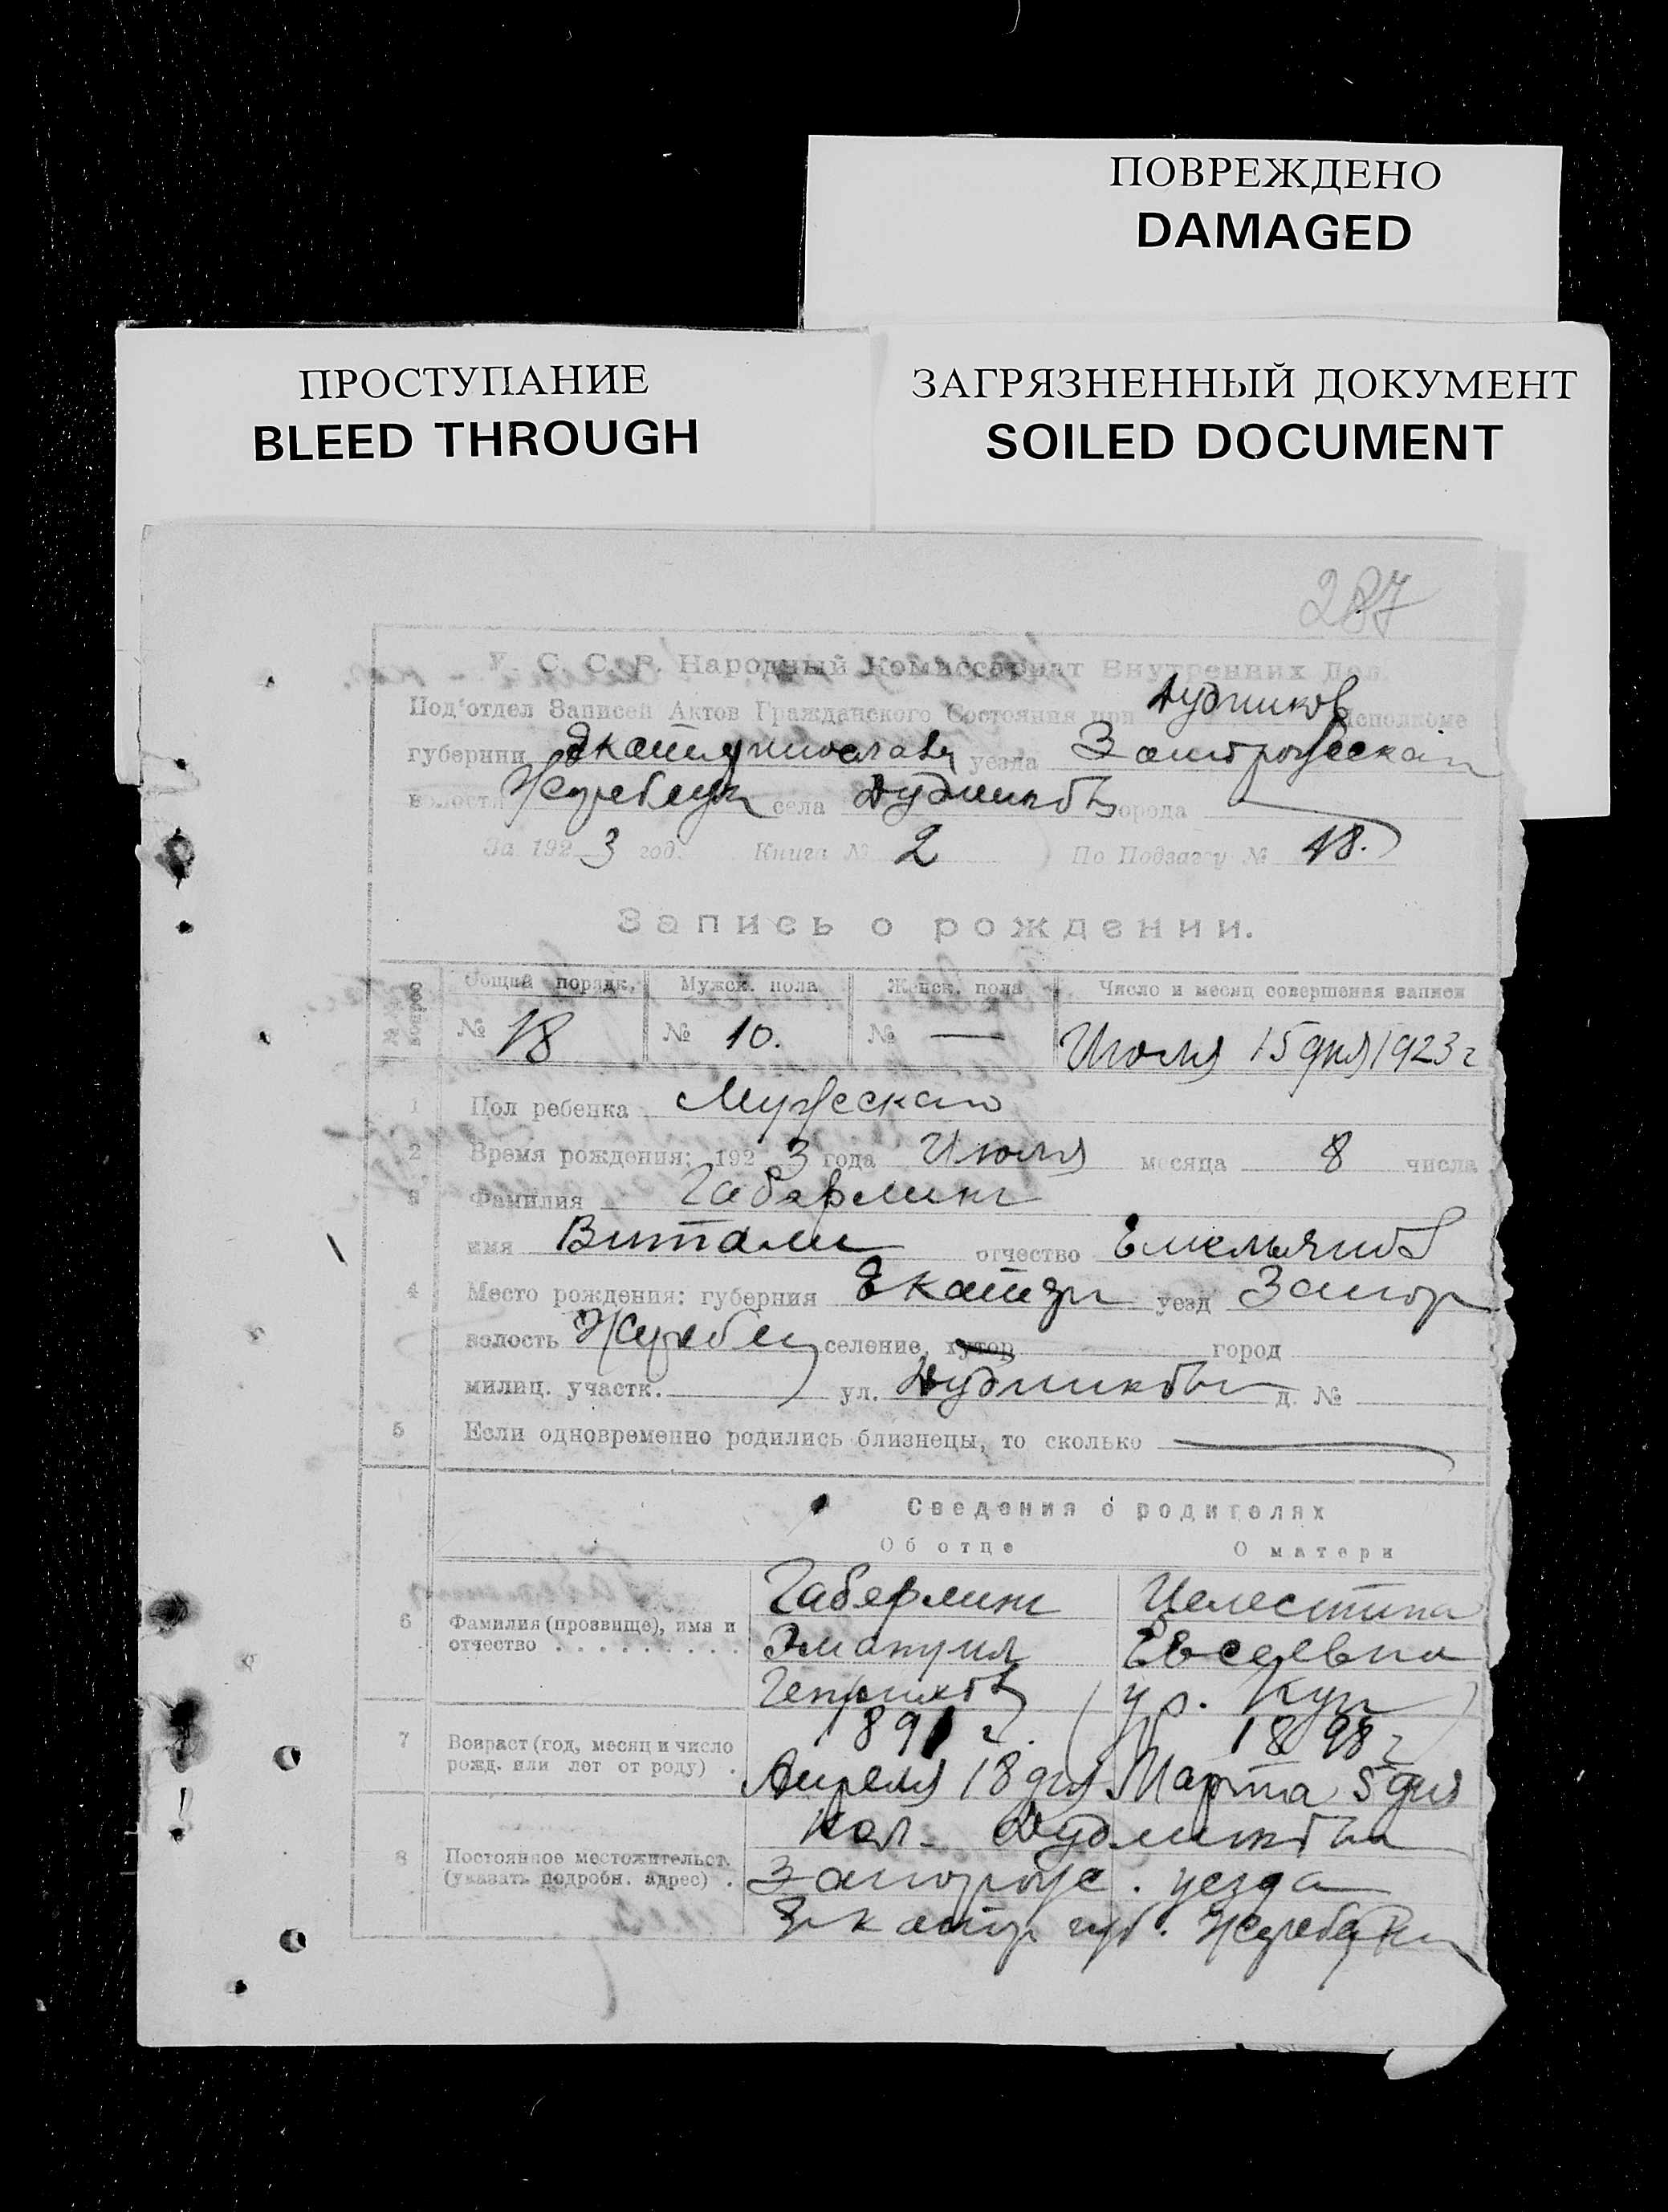 ПОВРЕЖДЕНО
DAMAGED
ПРОСТУПАНИЕ
BLEED THROUGH
ЗАГРЯЗНЕННЫЙ ДОКУМЕНТ
SOILED DOCUMENT
287
У. С. С. Р. Народный Комиссариат Внутренних Дел.
Под'отдел Записей Актов Гражданского Состояния при Дудников исполкоме
губернии уезда
волости села города
За 1923 год. Книга № 2 По Подзагсу № 18.
Запись о рождении.
№№ вопрос Общий порядк. Мужск. пола Женск. пола Число и месяц совершения записи
№ 18 № 10. № — Июля 15 дня 1923 г
1 Пол ребенка Мужескаго
2 Время рождения: 1923 года Июля месяца 8 числа
3 Фамилия Габерлинг
имя Витали отчество
4 Место рождения: губерния Екатер уезд Запор
волость Жеребец селение, хутор город
милиц. участк. ул. д. №
5 Если одновременно родились близнецы, то сколько
Сведения о родителях
Об отце О матери
Габерлинг Целестина
6 Фамилия (прозвище), имя и отчество Эмануил Евсеевна
Генрихов (ур. )
7 Возраст (год, месяц и число рожд. или лет от роду) 1891 г. 1898 г
Апреля 18 дня Марта 5 дня
Кол.
8 Постоянное местожительст. (указать подробн. адрес) Запорож. уезда
Екатер. губ.